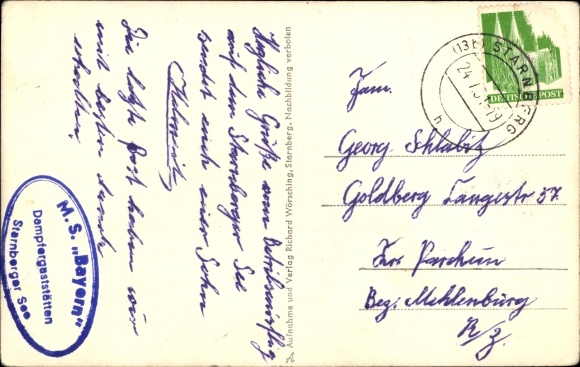 Herzliche Grüße vom Betriebsausflug
auf dem Starnberger See
sendet euch euer Sohn
Die letzte Post haben wir
mit bestem Dank
erhalten.
M.S. „Bayern"
Dampfergaststätten
Starnberger See
Aufnahme und Verlag Richard Wörsching, Starnberg. Nachbildung verboten
(13b) STARNBERG
24.7.51.-19
h
DEUTSCHE POST
Fam.
Georg Schlabitz
Goldberg Langestr 37
Krs Parchim
Bez. Mehlenburg
R/Z.